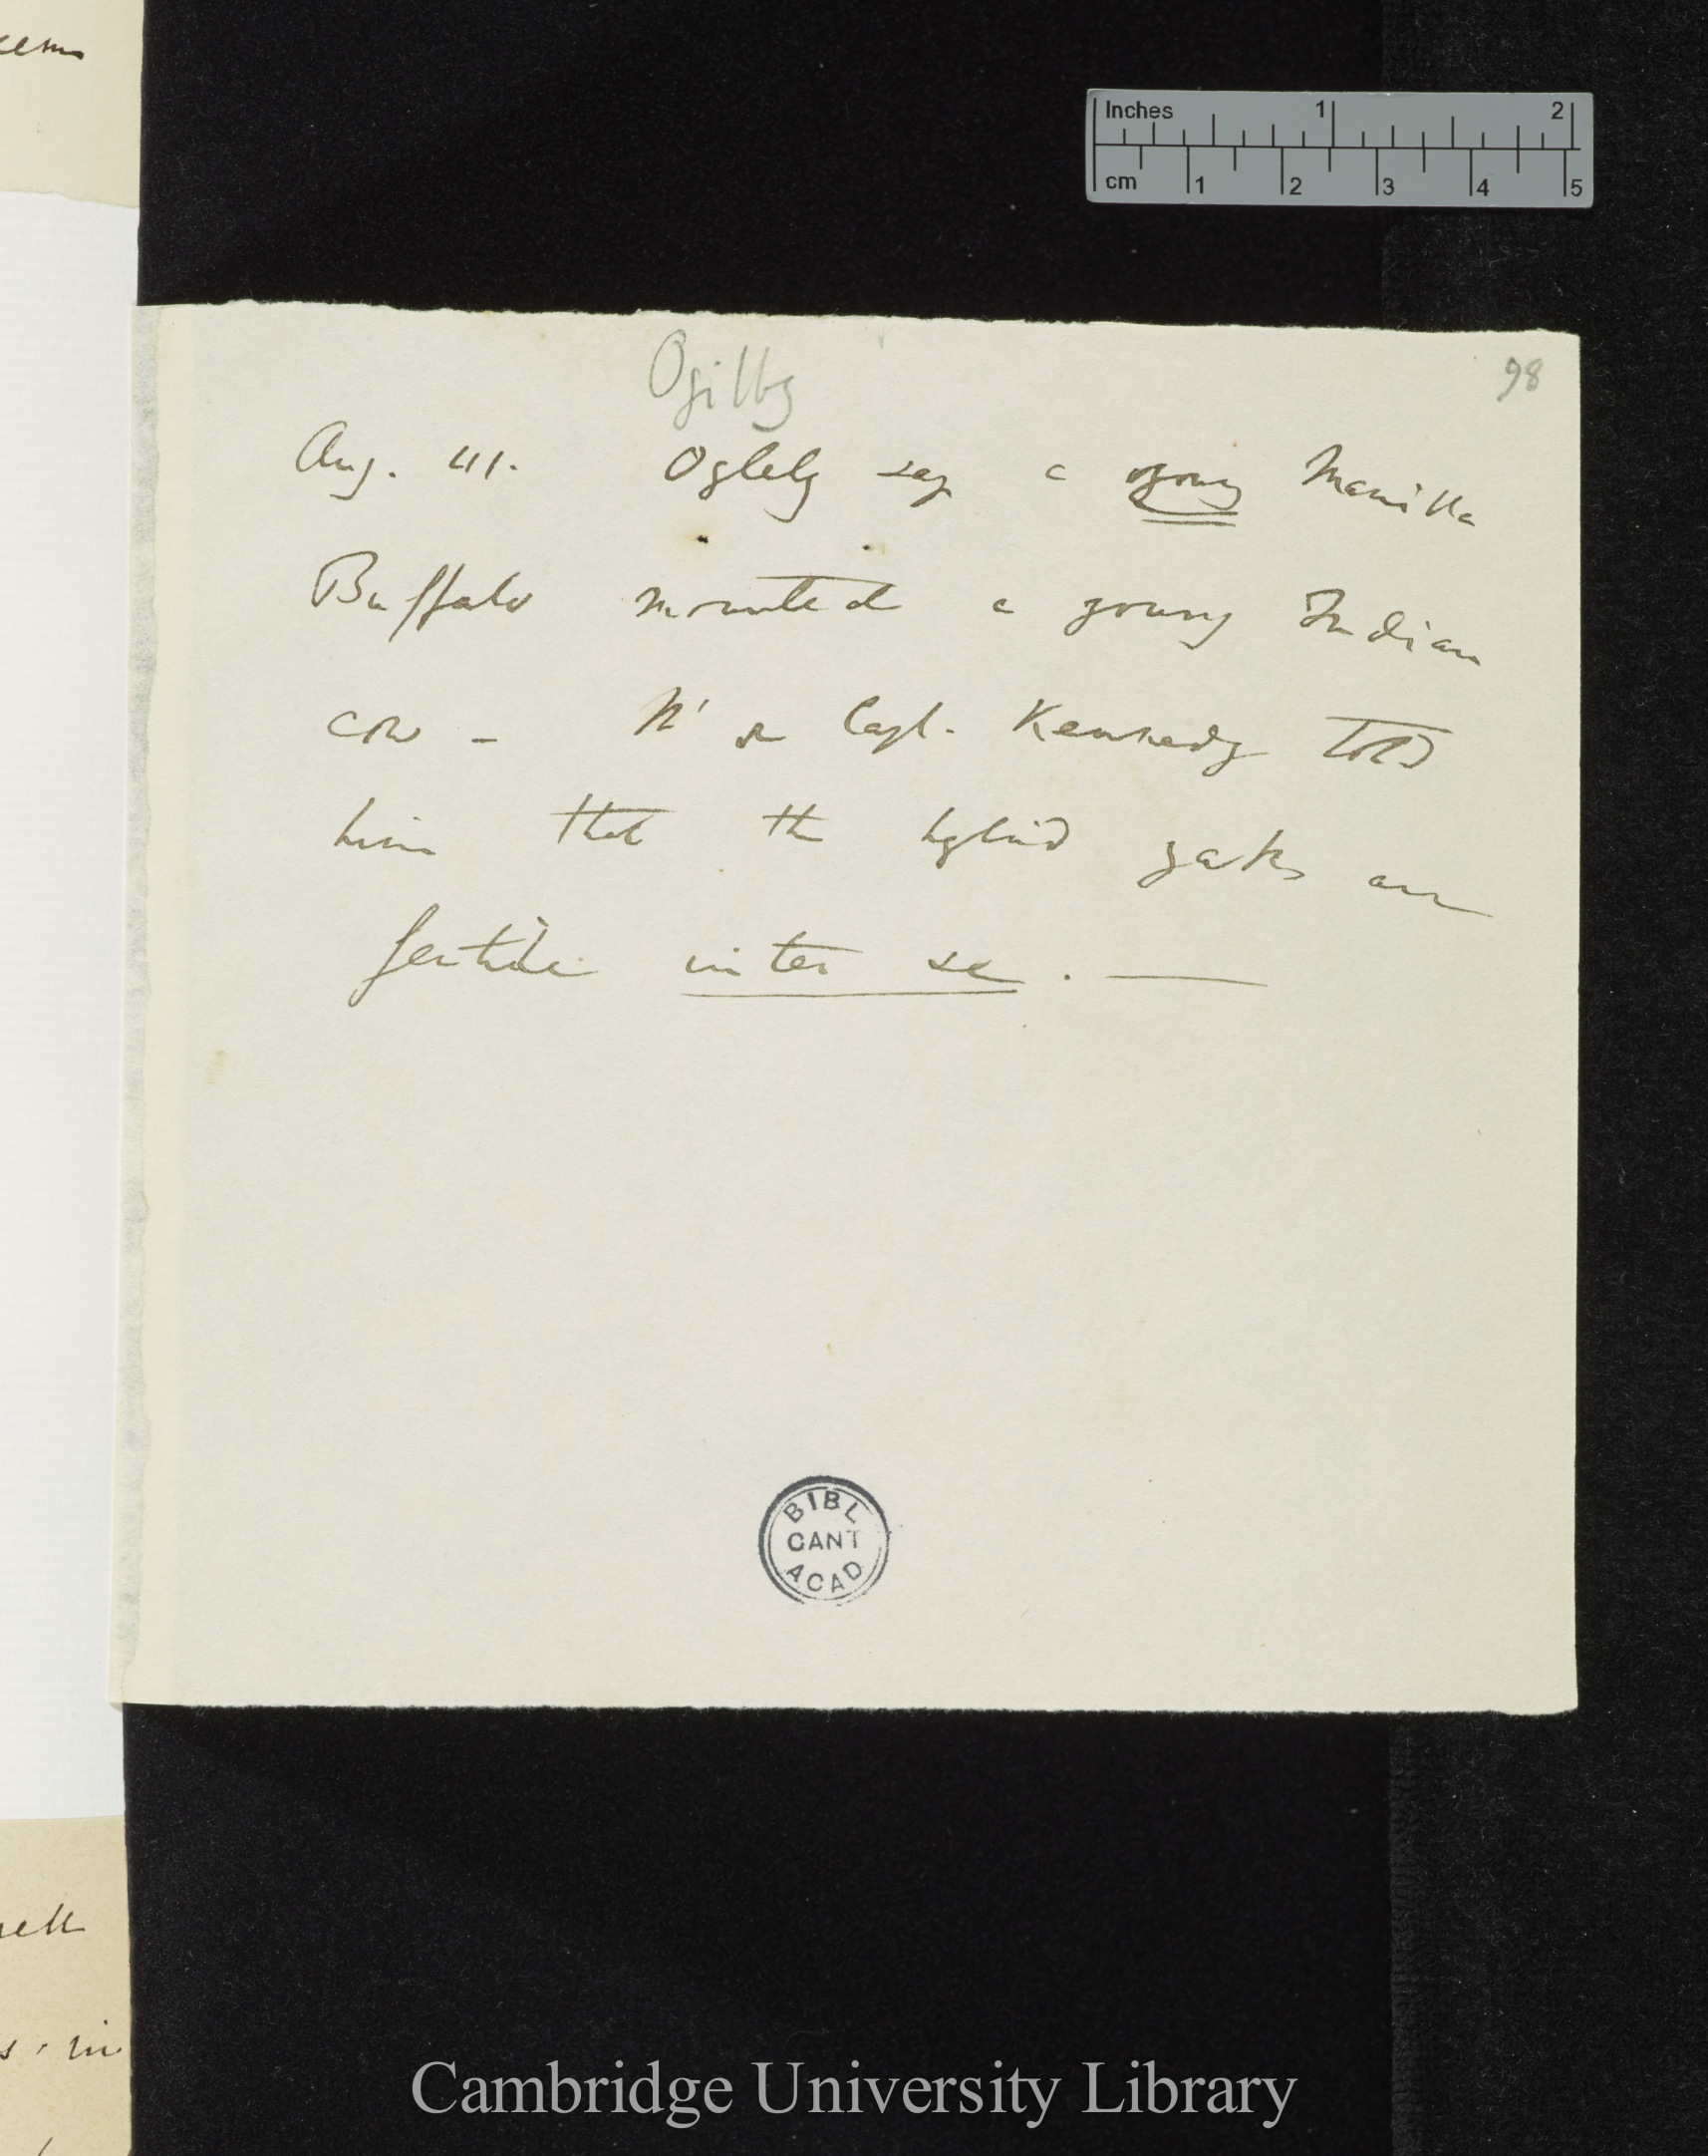 eems
Inches 1 2
cm 1 2 3 4 5
Ogilby
98
Aug. 41. Oglely say a young Manilla
Buffalo mounted a young Indian
cow – Capt. Kennedy told
him that the hybrid yaks are
fertile inter se. —
BIBL
CANT
ACAD
s . in
Cambridge University Library